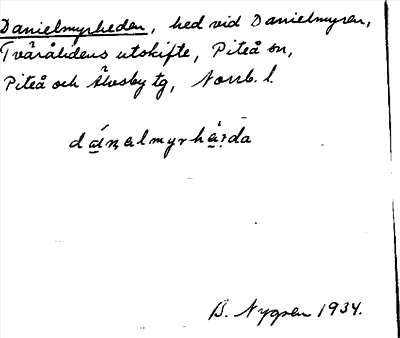 Danielmyrheden, hed vid Danielmyren,
Tvärålidens utskifte, Piteå sn,
Piteå och Älvsby tg, Norrb. l.
B. Nygren 1934.